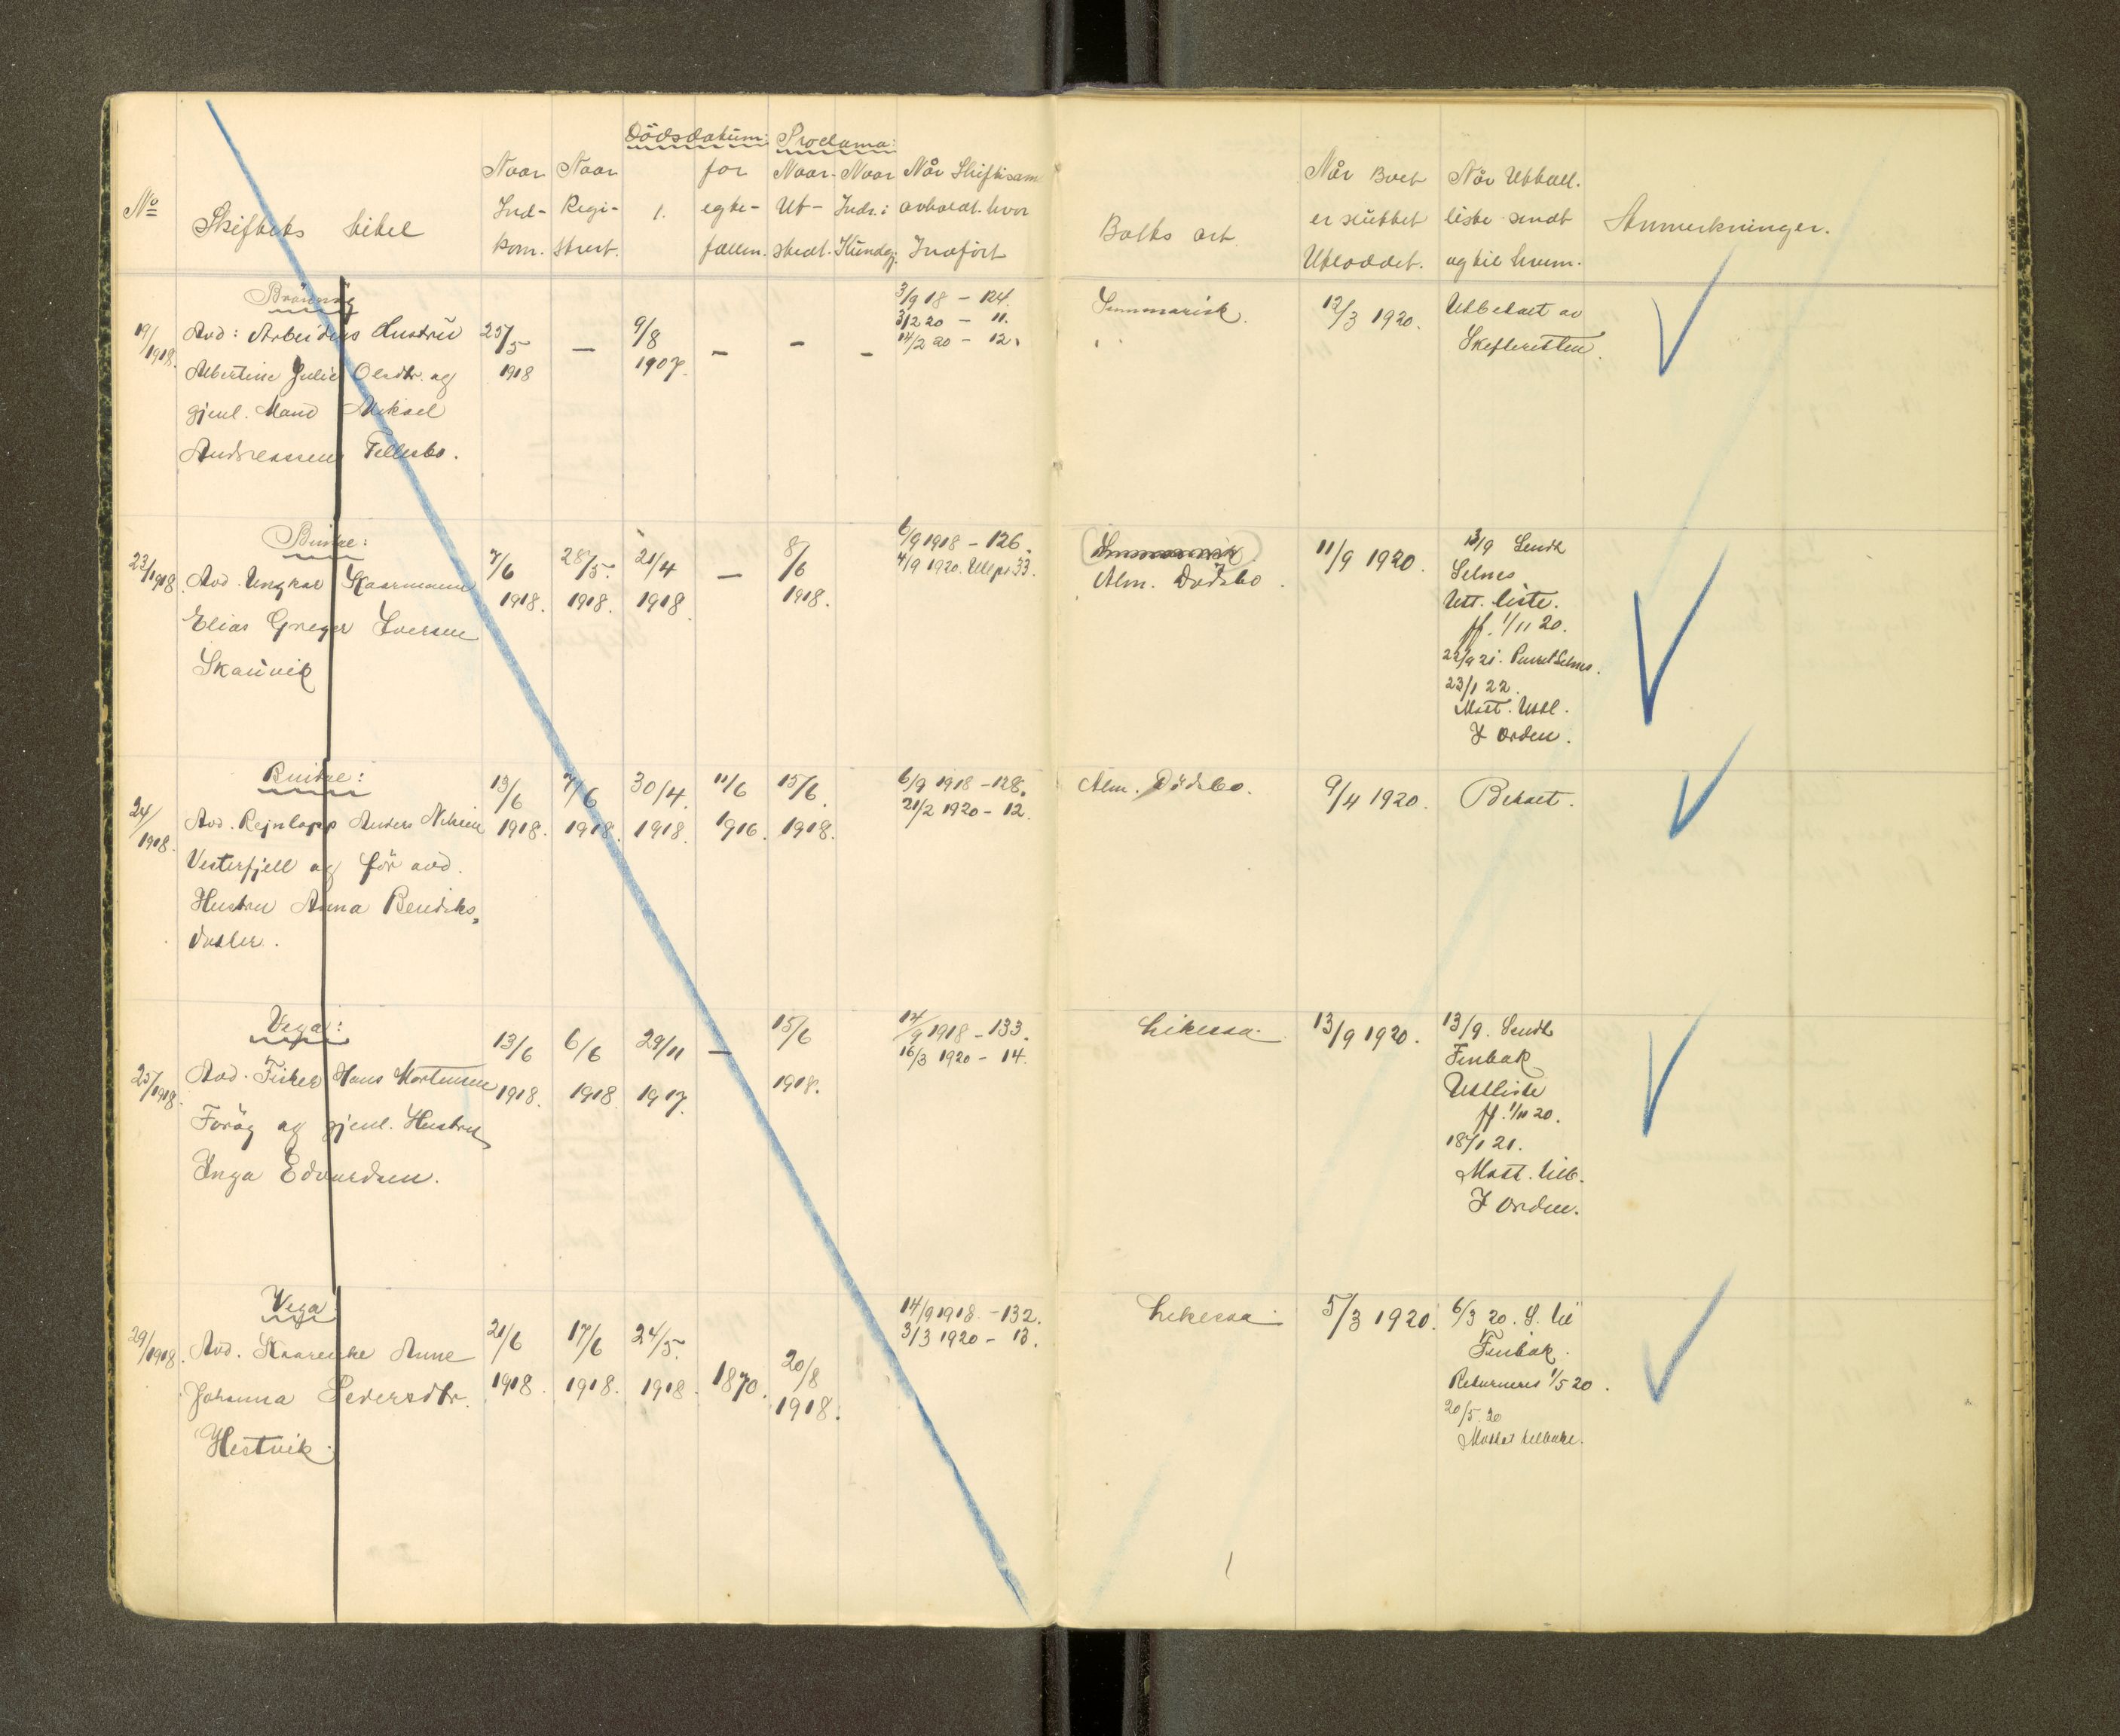 Dödsdatum: Proclama:
Naar Naar for Naar Naar Når Skiftesaml.
No Skiftets titel Ind- Regi- 1. egte- Ut- Indr. i avholdt. hvor
kom. strert. fællen. stedt. Kundgj. Indført
Brönnöy
19/1918. Avd: Arbeiders Hustru 25/5 — 9/8 — — — 3/9 18 – 124.
Albertine Julie Olsdtr. og 1918 1907. 3/2 20 – 11.
gjenl. Mand Mikael 14/2 20 – 12.
Andreassens Fellesbo.
Bindal:
23/1918. Avd. Ungkar Kaarmann 7/6 28/5. 21/4 — 8/6 6/9 1918 – 126.
Elias Greger Iversen 1918. 1918. 1918. 1918. 4/9 1920. 33.
Skauvik
Bindal:
24/1918. Avd. Rejnlapp Anders Nilsen 13/6 7/6 30/4. 11/6 15/6. 6/9 1918 – 128.
Vesterfjell og før avd. 1918. 1918. 1918. 1916. 1918. 21/2 1920 – 12.
Hustru Anna Bendiks-
datter.
Vega:
25/1918. Avd. Fisker Hans Mortensen 13/6 6/6 29/11 — 15/6 14/9 1918 – 133.
Foröy og gjenl. Hustru 1918. 1918 1917. 1918. 16/3 1920 – 14.
Inga Edvardsen.
Vega:
29/1918. Avd. Kaarenke Anne 21/6 17/6 24/5. 1870. 20/8 14/9 1918 – 132.
Johanna Pedersdtr. 1918. 1918. 1918 1918. 3/3 1920 – 13.
Hestvik.
Når Boet Når Utball.
Boets art. er sluttet liste sendt Anmerkninger.
Utloddet. og til hvem.
Summarisk. 12/3 1920. Utbetalt av
Skifteretten.
Summarisk
Alm. Dødsbo. 11/9 1920. 13/9 Sendt
Selnes
Utl. liste.
ff. 1/11 20.
22/9 21. Purret Selnes.
23/1 22.
Mott. Utbl.
I orden.
Alm. Dödsbo. 9/4 1920. Betalt.
13/9 1920. 13/9. Sendt
Finbak
Utlliste
ff. 1/11 20.
18/1 21.
Mott. tilb.
I orden.
5/3 1920. 6/3 20. S. til
Finbak.
Returneres 1/5 20.
20/5 20
Mottat tilbake.